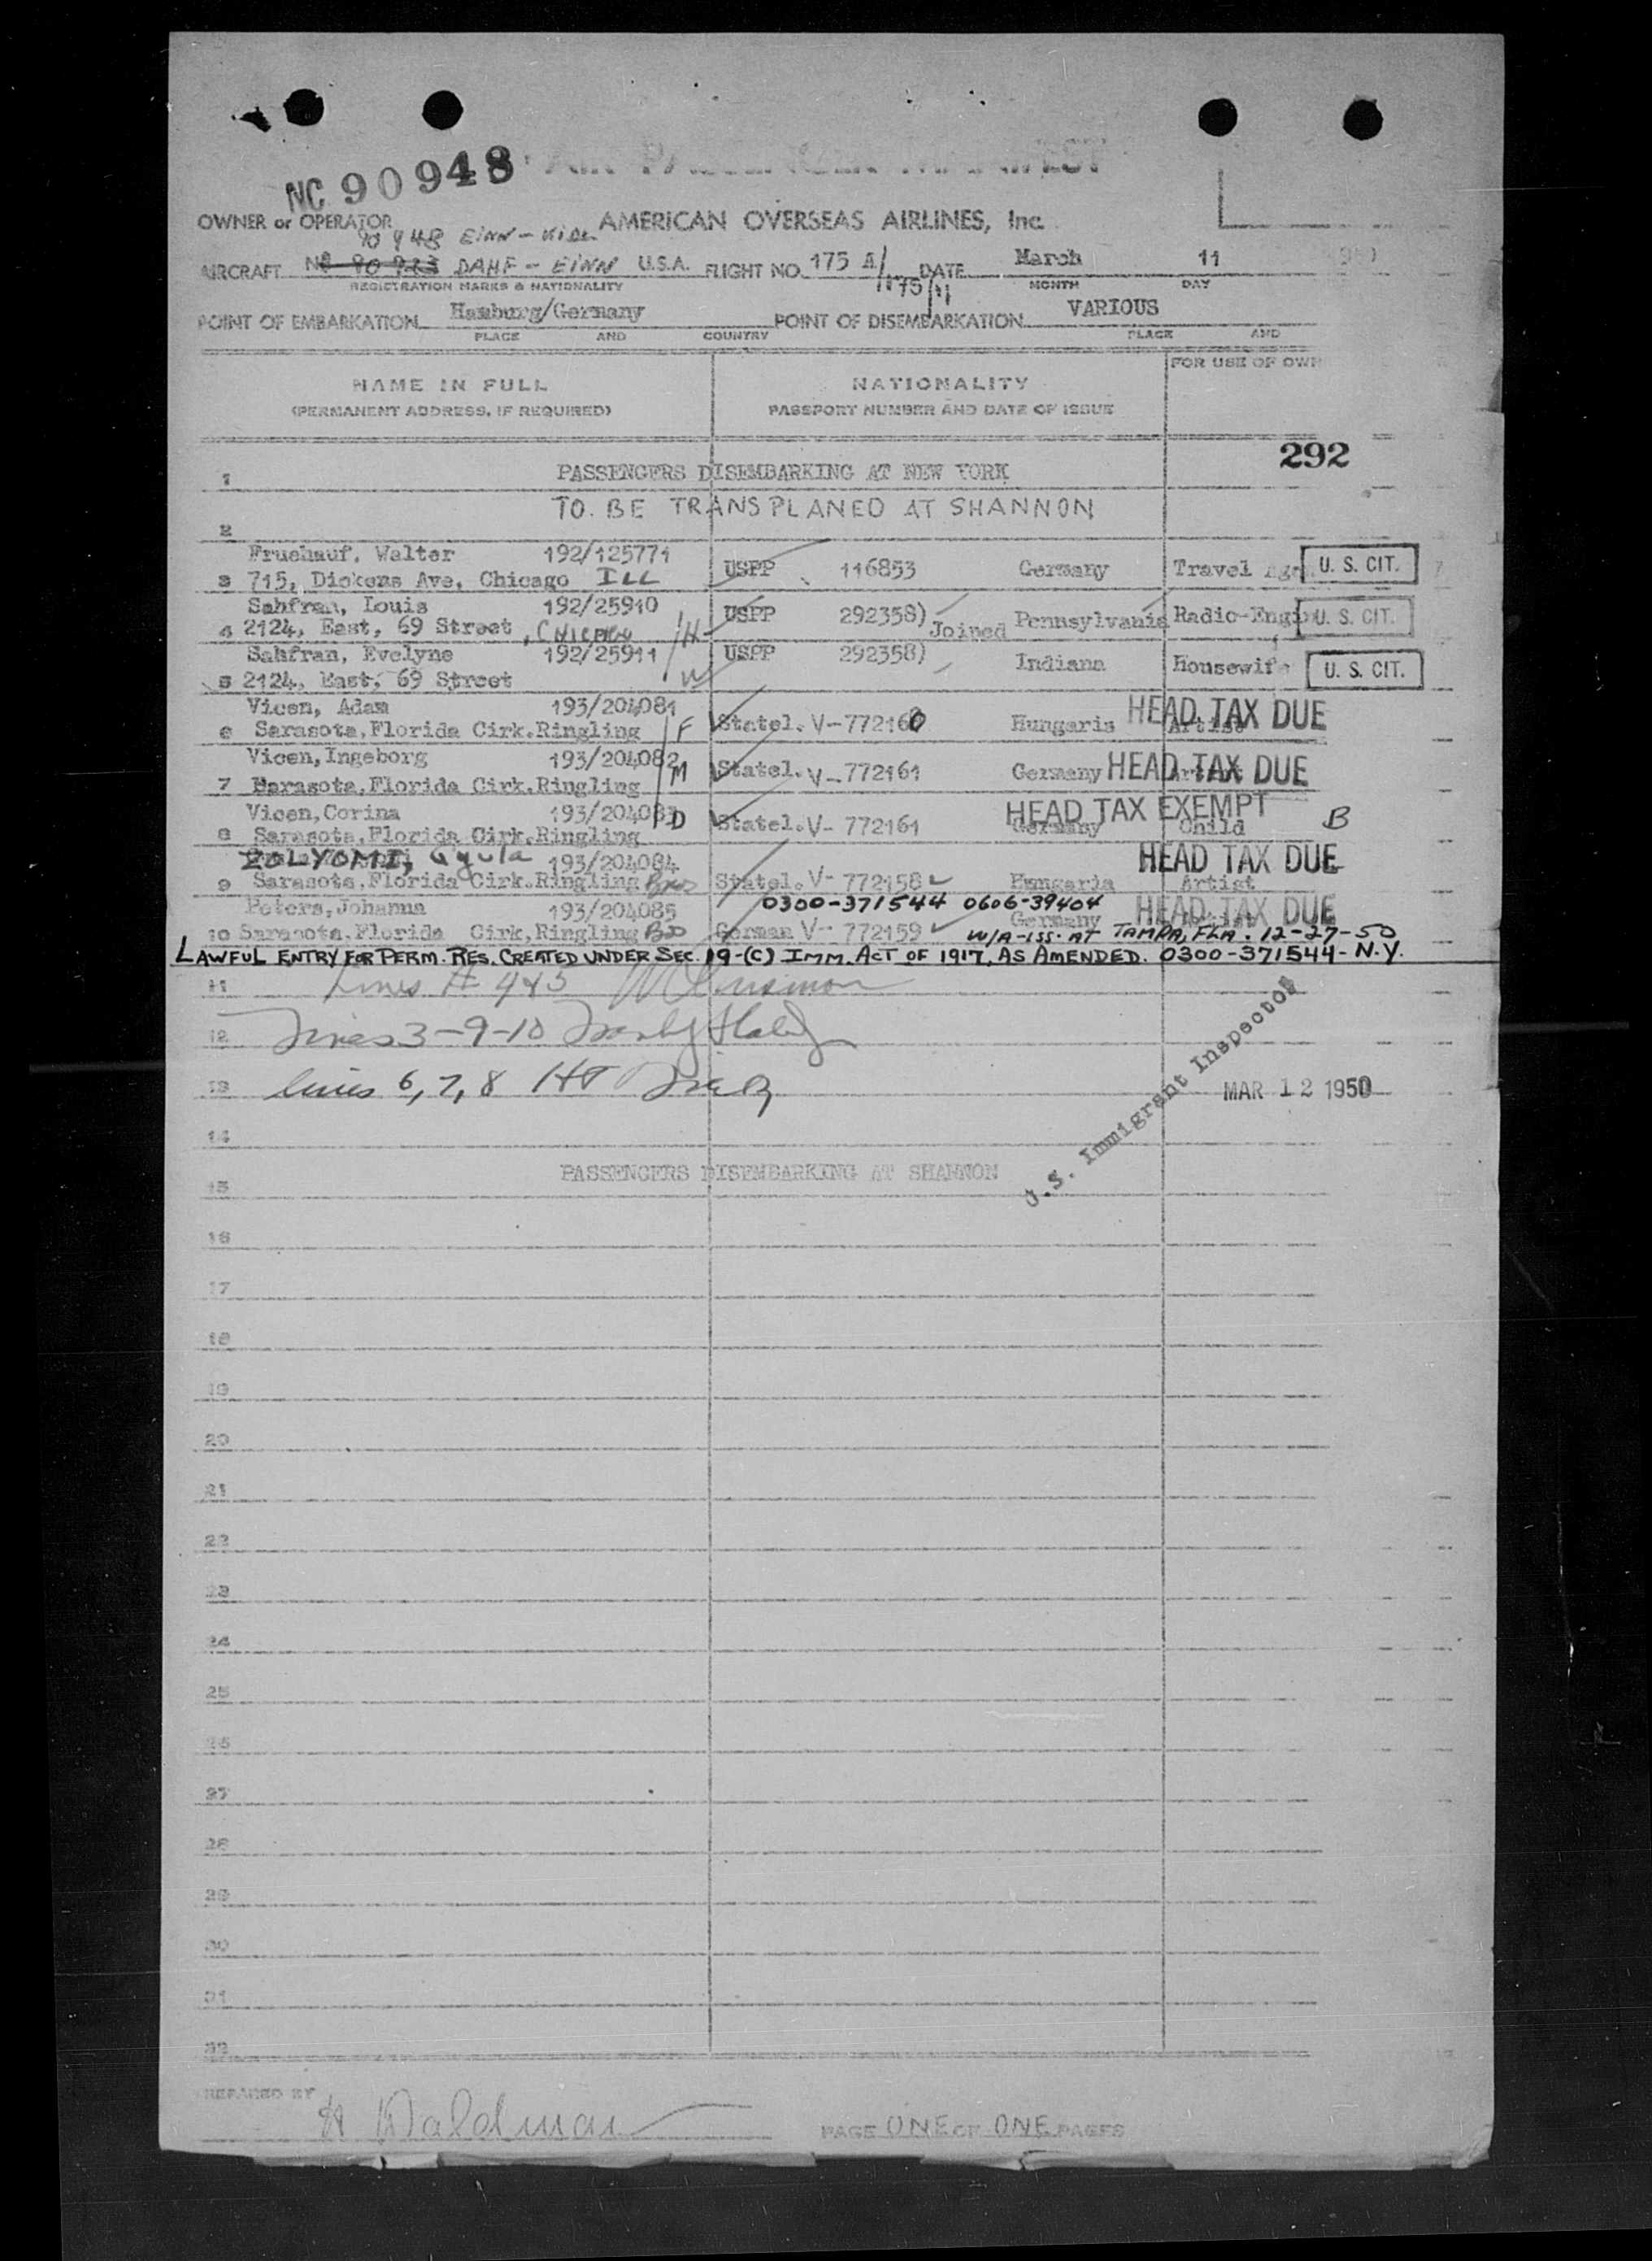 NC 90948
AIR PASSENGER MANIFEST
OWNER or OPERATOR AMERICAN OVERSEAS AIRLINES, Inc.
90948 EINN-KIDL
AIRCRAFT NC 90923 DAHF - EINN U.S.A. FLIGHT NO. 175 A/ 11 DATE March 11
175/11
REGISTRATION MARKS & NATIONALITY MONTH DAY
POINT OF EMBARKATION Hamburg/Germany POINT OF DISEMBARKATION VARIOUS
PLACE AND COUNTRY PLACE AND
NAME IN FULL NATIONALITY FOR USE OF OWN
(PERMANENT ADDRESS, IF REQUIRED) PASSPORT NUMBER AND DATE OF ISSUE
292
1 PASSENGERS DISEMBARKING AT NEW YORK
2 TO BE TRANSPLANED AT SHANNON
Fruehauf, Walter 192/125771
3 715, Dickens Ave, Chicago ILL USPP 116853 Germany Travel Age U. S. CIT.
Sahfran, Louis 192/25910
4 2124, East, 69 Street, Chicago H USPP 292358) Joined Pennsylvania Radio-Engi U. S. CIT.
Sahfran, Evelyne 192/25911 USPP 292358)
5 2124, East, 69 Street W Indiana Housewife U. S. CIT.
Vicen, Adam 193/204081
6 Sarasota, Florida Cirk.Ringling F Statel. V-772160 Hungaris Artist HEAD TAX DUE
Vicen, Ingeborg 193/204082
7 Sarasota, Florida Cirk.Ringling M Statel. V-772161 Germany HEAD TAX DUE
Vicen, Corina 193/204083
8 Sarasota, Florida Cirk.Ringling D Statel. V- 772161 Germany Child HEAD TAX EXEMPT B
ZOLYOMI, Gyula 193/204084
9 Sarasota, Florida Cirk.Ringling Bros Statel. V- 772158 Hungaria Artist HEAD TAX DUE
Peters, Johanna 193/204085 0300-371544 0606-39404
10 Sarasota. Florida Cirk, Ringling Bro German V- 772159 Germany HEAD TAX DUE
W/A-ISS. AT TAMPA, FLA. 12-27-50
LAWFUL ENTRY FOR PERM. RES. CREATED UNDER SEC. 19-(C) IMM. ACT OF 1917, AS AMENDED. 0300-371544-N.Y.
11 Lines # 4&5
12 Lines 3-9-10
13 lines 6, 7, 8
U.S. Immigrant Inspector
MAR 12 1950
14
15 PASSENGERS DISEMBARKING AT SHANNON
16
17
18
19
20
21
22
23
24
25
26
27
28
29
30
31
32
PREPARED BY H Waldman PAGE ONE OF ONE PAGES